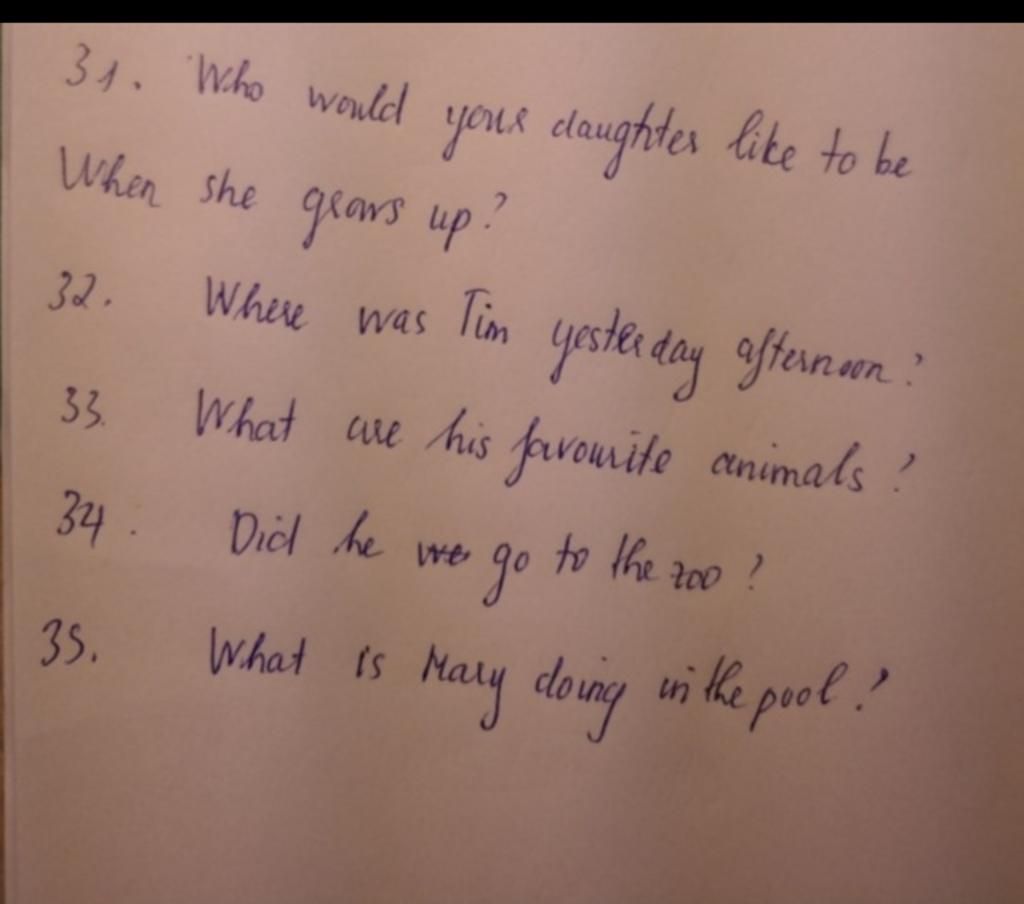 31. Who would your daughter like to be
When she grows up?
32. Where was Tim yesterday afternoon?
33. What are his favourite animals?
34. Did he we go to the zoo?
35. What is Mary doing in the pool?